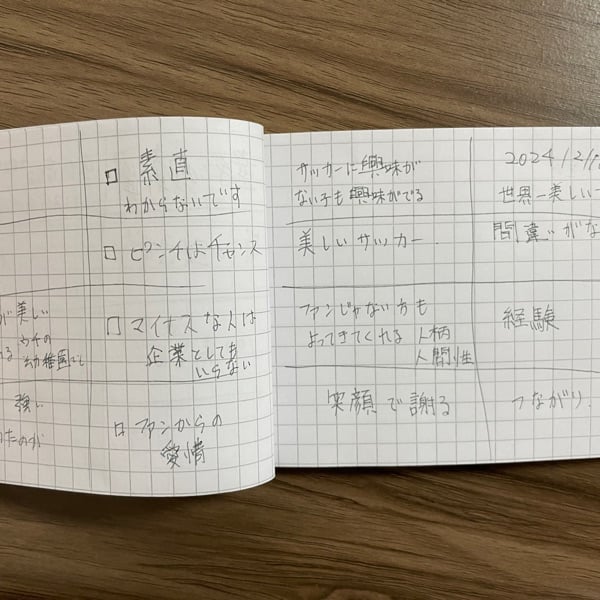 素直
わからないです
ピンチはチャンス
が美しい
ウチの
幼稚園でも
マイナスな人は
企業としても
いらない
強い
ったのが
ファンからの
愛情
サッカーに興味が
ない子も興味がでる
美しいサッカー
ファンじゃない方も
よってきてくれる 人柄
人間性
笑顔で謝る
2024/2/1
世界一美しい
間違いがな
経験
つながり.